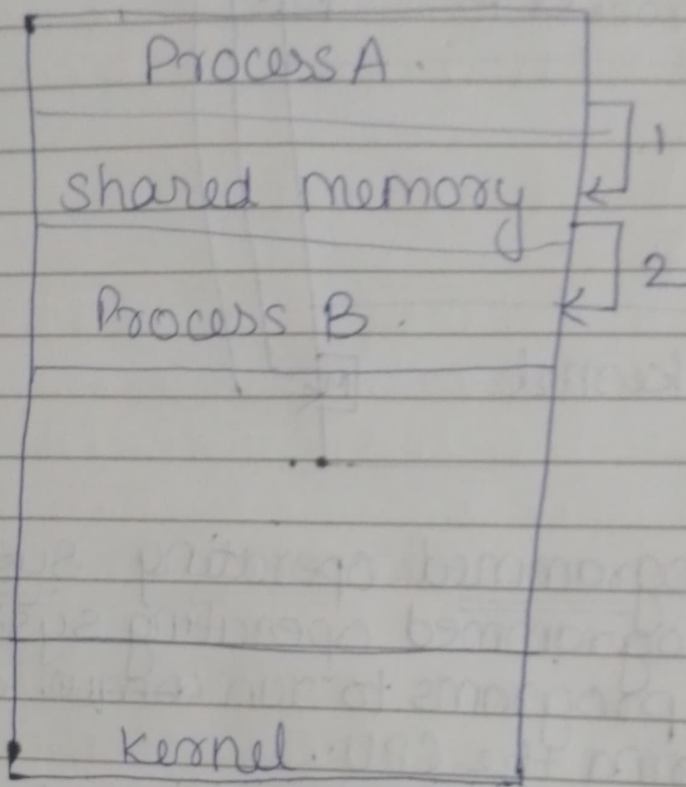 Process A.
1
shared memory
2
Process B.
kernel.